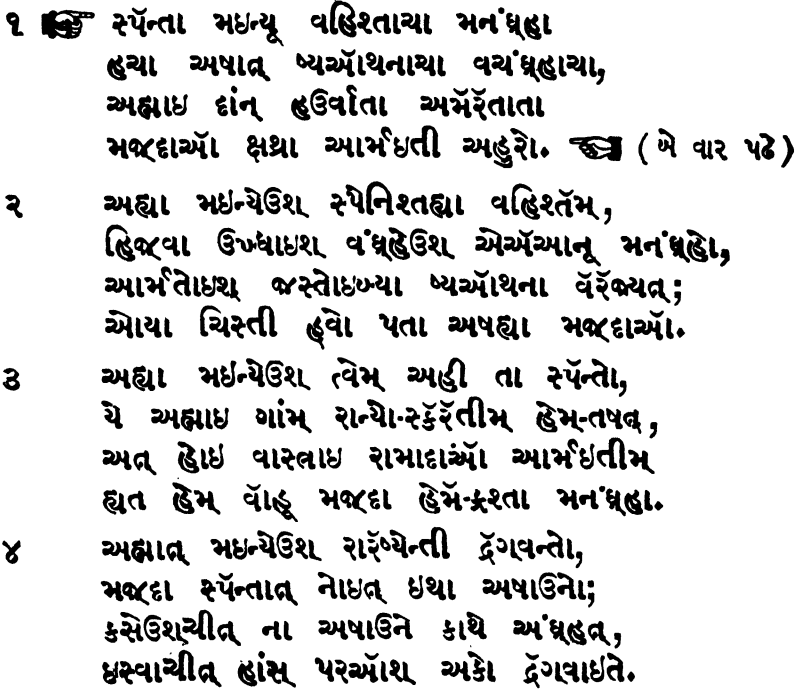 ૧ ☞ સ્પૅન્તા મઇન્યૂ વહિશ્તાચા મનંઘ્હા
હચા અષાત્ ષ્યઑથનાચા વચંઘ્હાચા,
અહ્માઇ દાંન્ હઉર્વાતા અમૅરૅતાતા
મજ્દાઑ ક્ષથ્રા આર્મઇતી અહુરો. ☜ (બે વાર પઢે)
૨ અહ્યા મઇન્યેઉશ્ સ્પેનિશ્તહ્યા વહિશ્તૅમ્,
હિજવા ઉખ્ધાઇશ્ વંઘ્હેઉશ્ એઍઆનૂ મનંઘ્હો,
આર્મતોઇશ્ જસ્તોઇબ્યા ષ્યઑથના વૅરૅજ્યત્;
ઓયા ચિસ્તી હ્વો પતા અષહ્યા મજ્દાઑ.
૩ અહ્યા મઇન્યેઉશ્ ત્વેમ્ અહી તા સ્પૅન્તો,
યે અહ્માઇ ગાંમ્ રાન્યો-સ્કૅરૅતીમ્ હેમ્-તષત્,
અત્ હોઇ વાસ્ત્રાઇ રામાદાઑ આર્મઇતીમ્
હ્યત હેમ્ વૉહૂ મજ્દા હેમૅ-ફ્રશ્તા મનંઘ્હા.
૪ અહ્માત્ મઇન્યેઉશ્ રારૅષ્યેન્તી દ્રૅગવન્તો,
મજ્દા સ્પૅન્તાત્ નોઇત્ ઇથા અષાઉનો;
કસેઉશ્ચીત્ ના અષાઉને કાથે અંઘ્હત્,
ઇસ્વાચીત્ હાંસ્ પરઑશ્ અકો દ્રૅગવાઇતે.